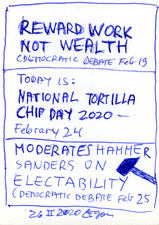 REWARD WORK
NOT WEALTH
(DEMOCRATIC DEBATE Feb 19
TODAY IS:
NATIONAL TORTILLA
CHIP DAY 2020 —
February 24
MODERATES HAMMER
SANDERS ON
ELECTABILITY
(DEMOCRATIC DEBATE Feb 25
26 II 2020